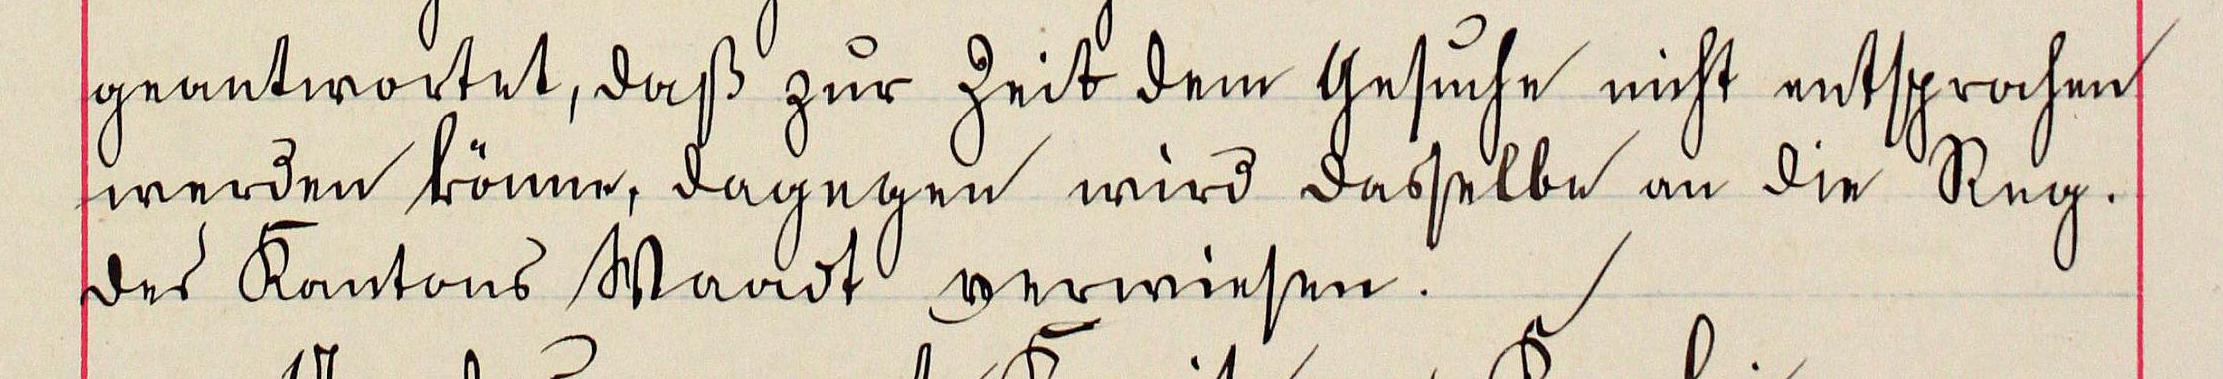 geantwortet, daß zur Zeit dem Gesuche nicht entsprochen
werden könne, dagegen wird dasselbe an die Reg.
des Kantons Waadt verwiesen.